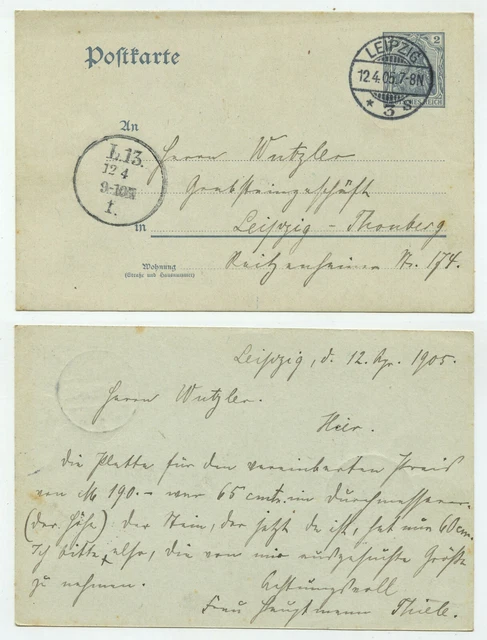 Postkarte
2
DEUTSCHES REICH
LEIPZIG
12.4.05.7-8N
* 3 s
An
L.13.
12 4
9-10N
I.
Herrn Wutzler
Grabsteingeschäft
in Leipzig - Thonberg
Wohnung
(Straße und Hausnummer)
Reitzenhainer Str. 174.
Leipzig, d. 12. Apr. 1905.
Herrn Wutzler.
Hier.
Die Platte für den vereinbarten Preis
von M 190.- war 65 cmtr. im Durchmesser
(der Höhe) der Stein, der jetzt da ist, hat nur 60 cm.
Ich bitte also, die von mir ausgesuchte Größe
zu nehmen.
Achtungsvoll
Frau Hauptmann Thiele.